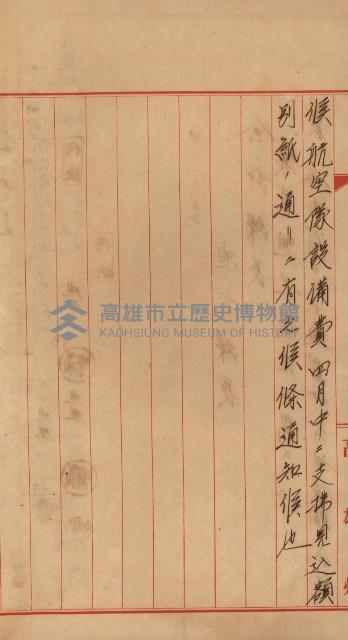 候航空隊設備費四月中ニ支拂見込額
別紙ノ通リニ有之候條通知候也
高雄州
高雄市立歷史博物館
KAOHSIUNG MUSEUM OF HISTORY